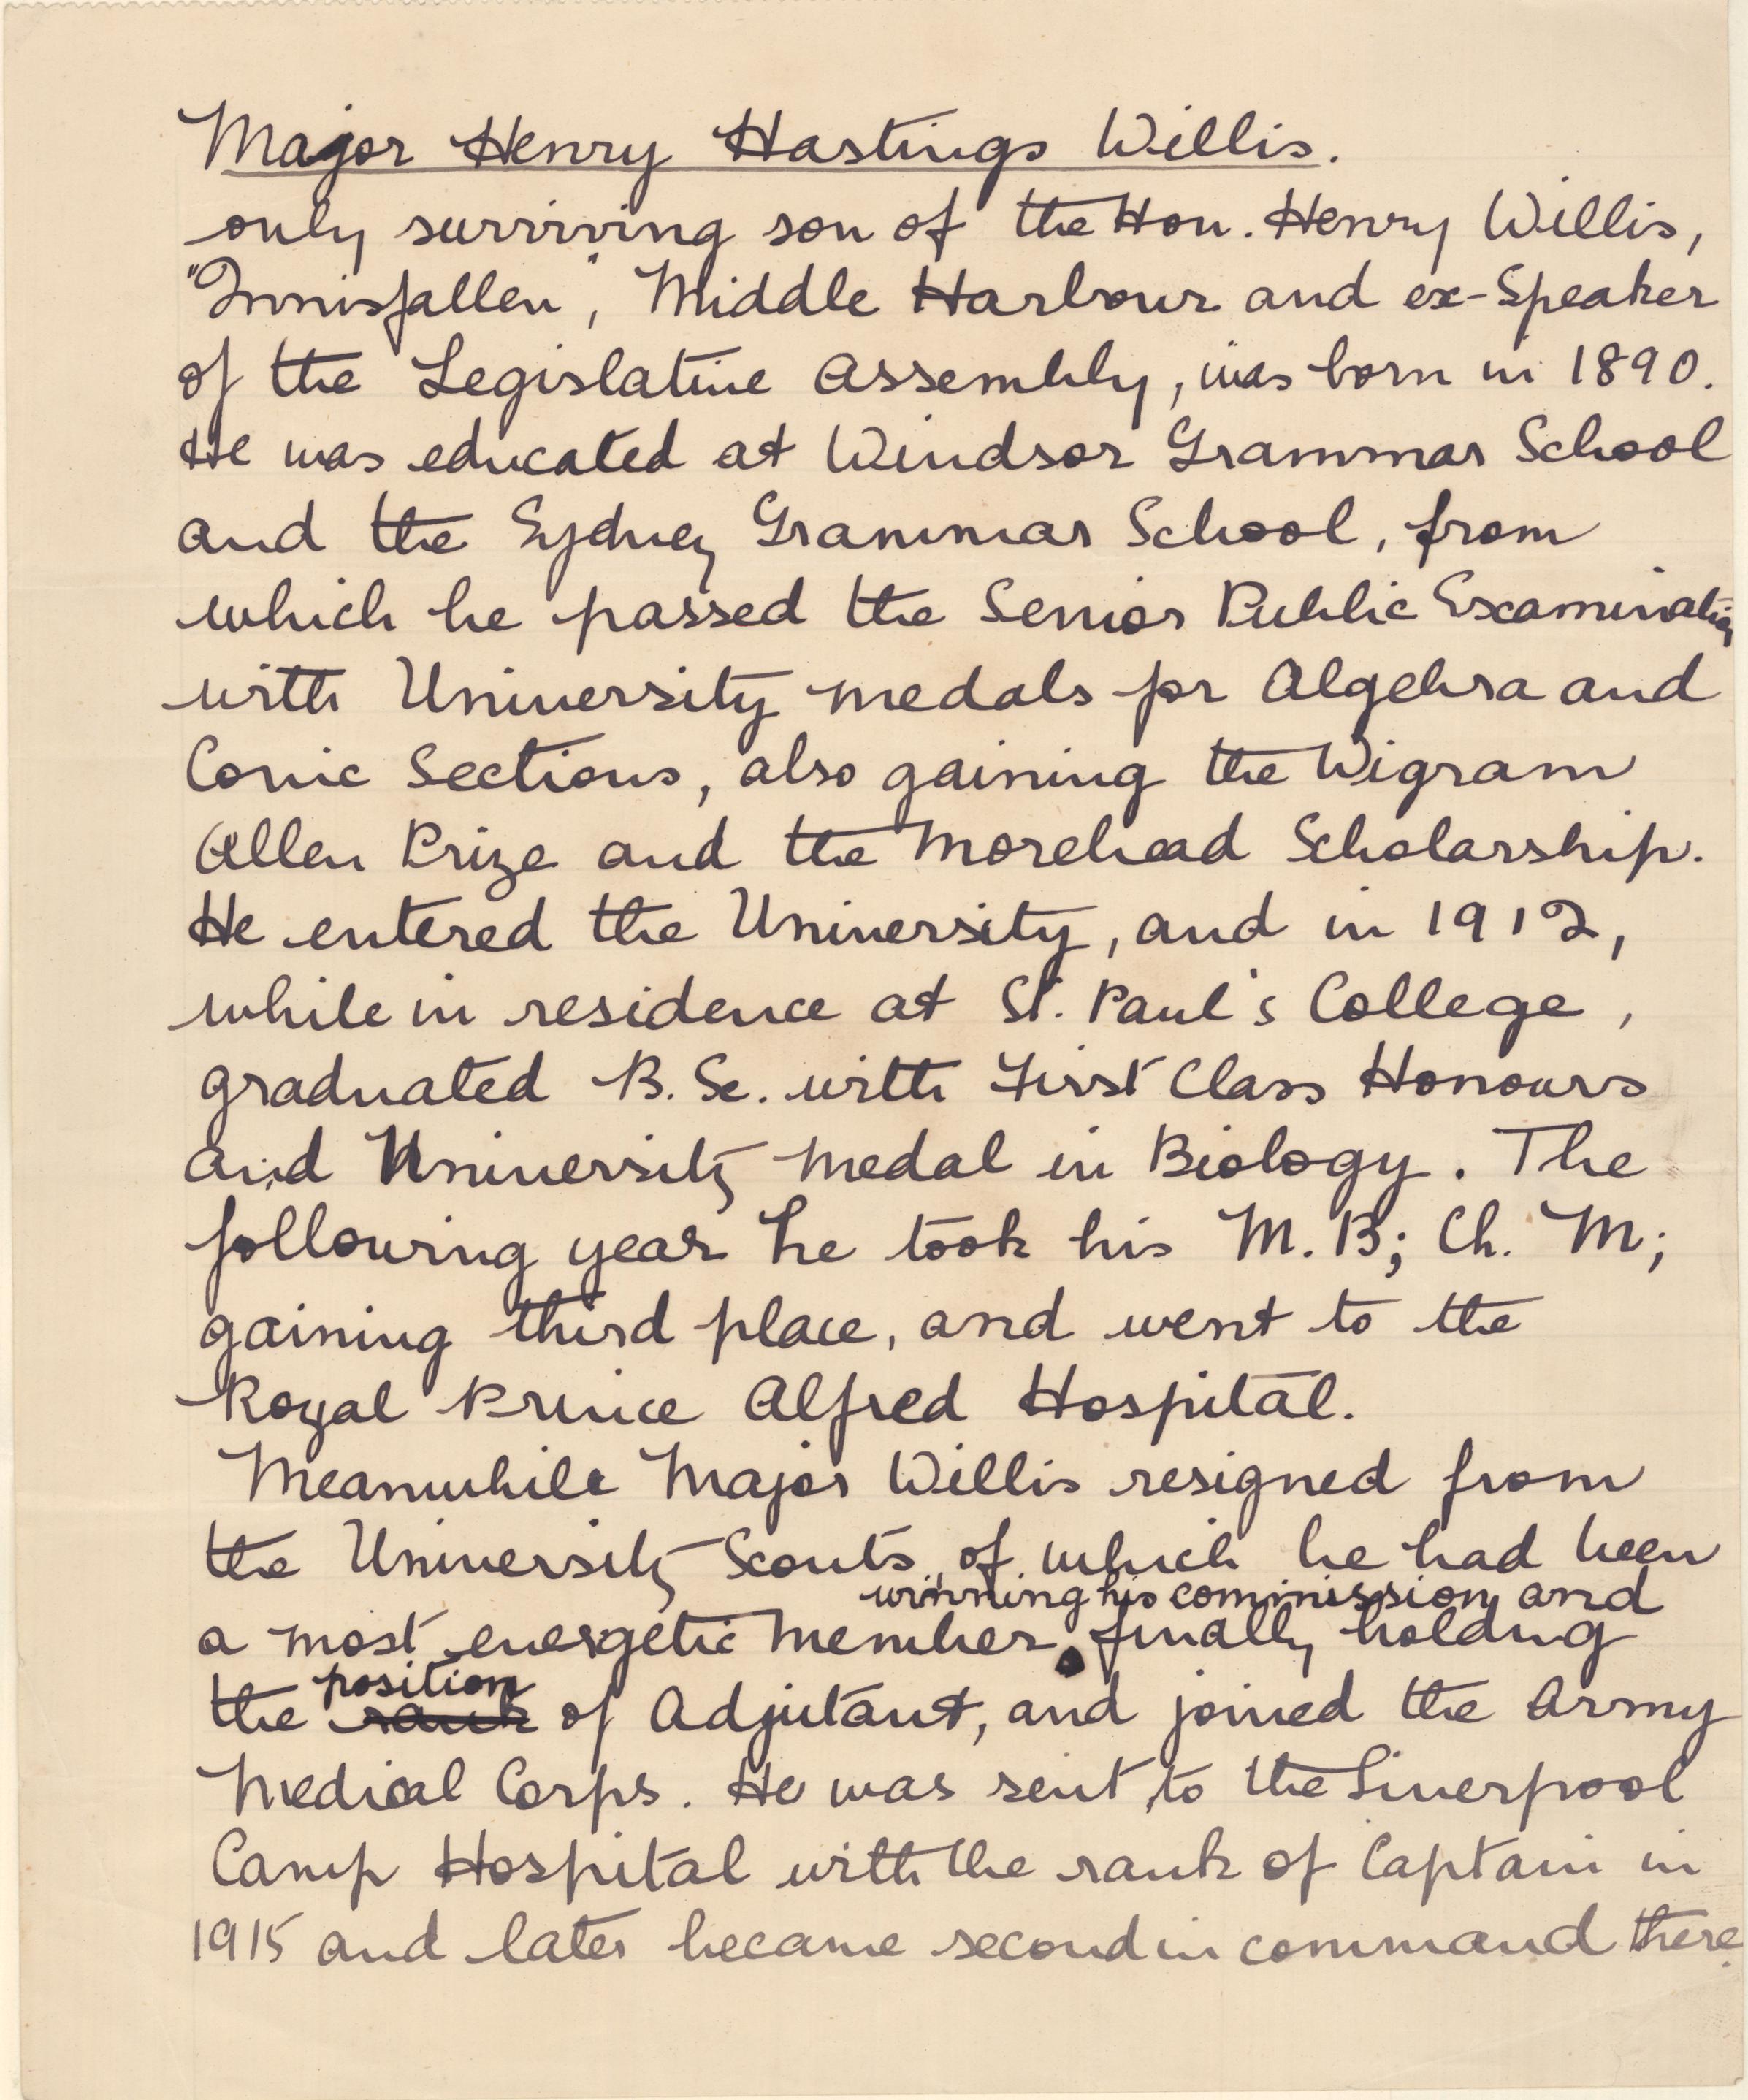 Major Henry Hastings Willis.
only surviving son of the Hon. Henry Willis,
"Innisfallen", Middle Harbour and ex-Speaker
of the Legislative Assembly, was born in 1890.
He was educated at Windsor Grammar School
and the Sydney Grammar School, from
which he passed the Senior Public Examination
with University medals for Algebra and
Conic Sections, also gaining the Wigram
Allen Prize and the Morehead Scholarship.
He entered the University, and in 1912,
while in residence at St. Paul's College,
graduated B. Sc. with First Class Honours
and University Medal in Biology. The
following year he took his M. B; Ch. M;
gaining third place, and went to the
Royal Prince Alfred Hospital.
Meanwhile Major Willis resigned from
the University Scouts, of which he had been
winning his commission and
a most energetic member, finally holding
position
the rank of Adjutant, and joined the Army
Medical Corps. He was sent to the Liverpool
Camp Hospital with the rank of Captain in
1915 and later became second in command there.